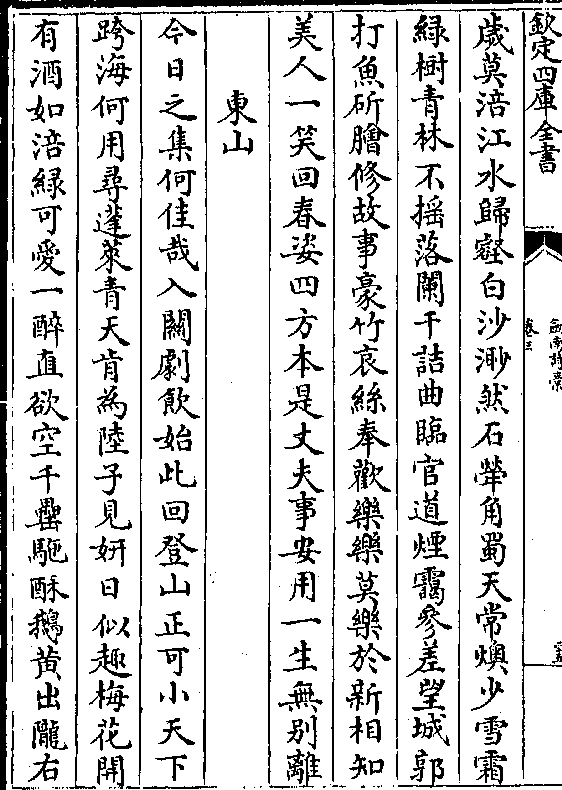 欽定四庫全書
劍南詩稾
卷三
歲莫涪江水歸壑白沙渺然石犖角蜀天常燠少雪霜
綠樹青林不揺落闌干詰曲臨官道煙靄參差望城郭
打魚斫膾修故事豪竹哀絲奉歡樂樂莫樂於新相知
美人一笑回春姿四方本是丈夫事安用一生無別離
東山
今日之集何佳哉入關劇飲始此回登山正可小天下
跨海何用尋蓬萊青天肯為陸子見妍日似趣梅花開
有酒如涪緑可愛一醉直欲空千罍駞酥鵝黄出隴右